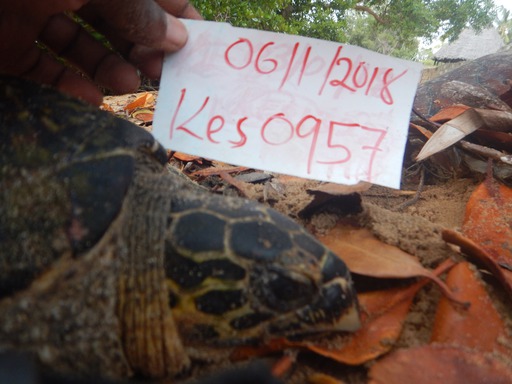 06/1/2018
Kes0957